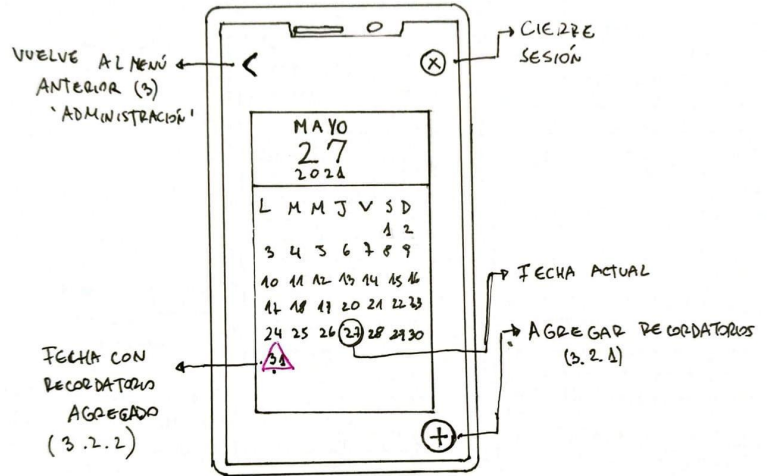 VUELVE AL MENÚ
ANTERIOR (3)
'ADMINISTRACIÓN'
<
X
CIERRE
SESIÓN
MAYO
27
2021
L M M J V S D
1 2
3 4 5 6 7 8 9
10 11 12 13 14 15 16
17 18 19 20 21 22 23
24 25 26 27 28 29 30
31
FECHA ACTUAL
AGREGAR RECORDATORIOS
(3.2.1)
FECHA CON
RECORDATORIO
AGREGADO
(3.2.2)
+